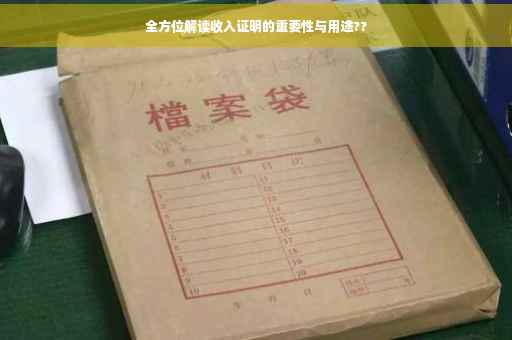 全方位解读收入证明的重要性与用途??
檔案袋
材料目次
1 11
2 12
3 13
4 14
5 15
6 16
7 17
8 18
9 19
10 20
年 月 日